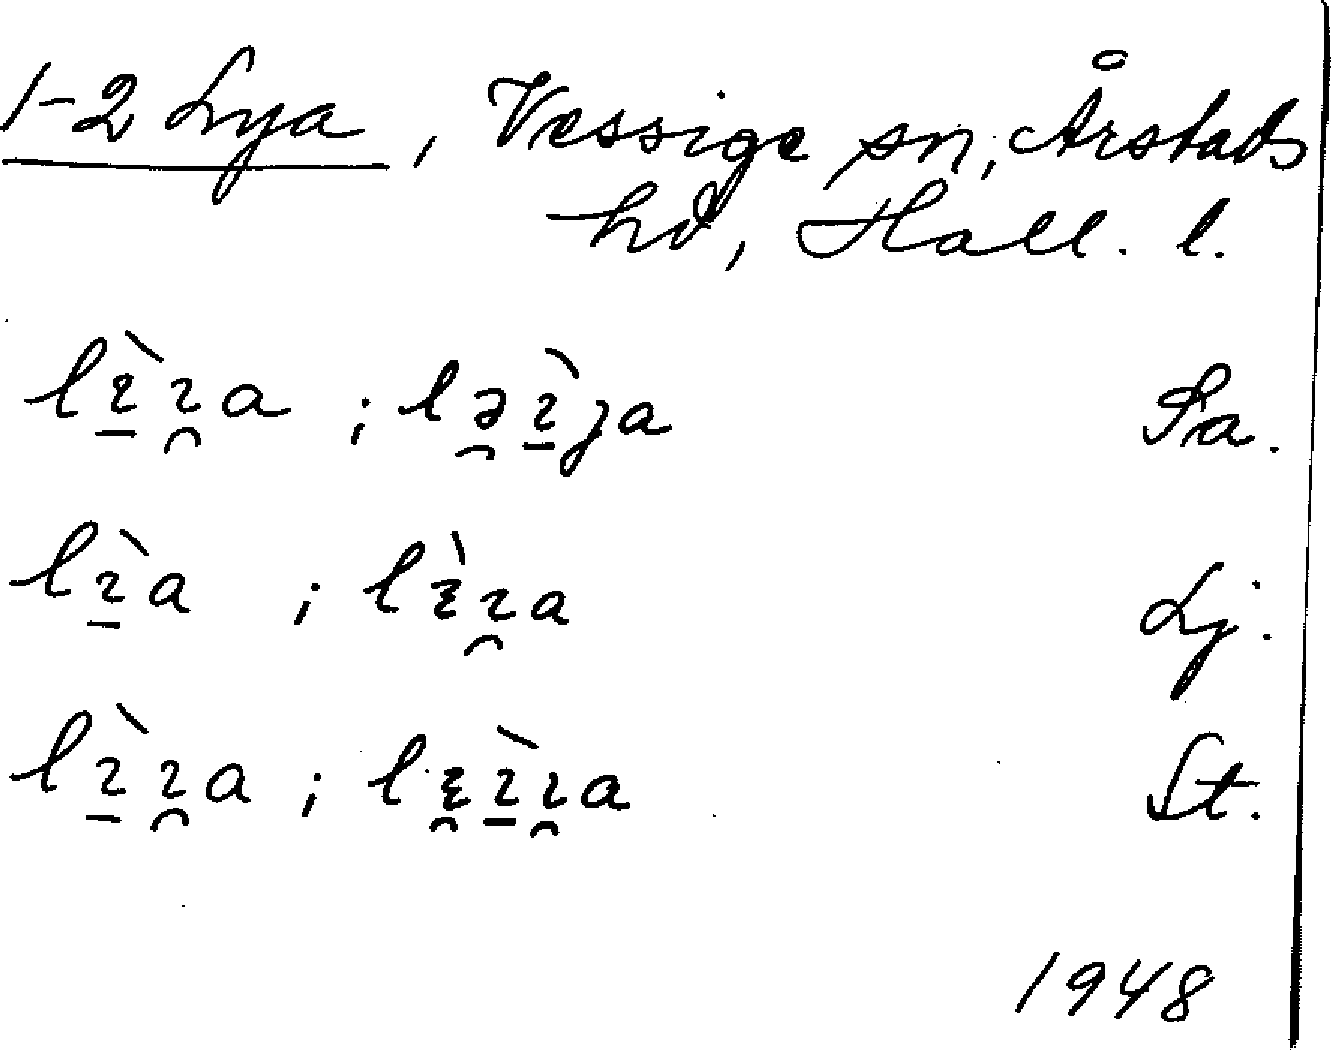 1-2 Lya, Vessige sn, Årstads
hd, Hall. l.
lı̱̀ı̯a ; lə̯ı̱̀ja Sa.
lı̱̀a ; lɛ̀ı̯a Lj.
lı̱̀ı̯a ; lɛ̯ı̱̀ı̯a St.
1948